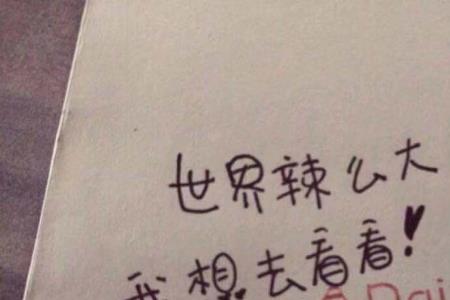 世界辣么大
我想去看看!